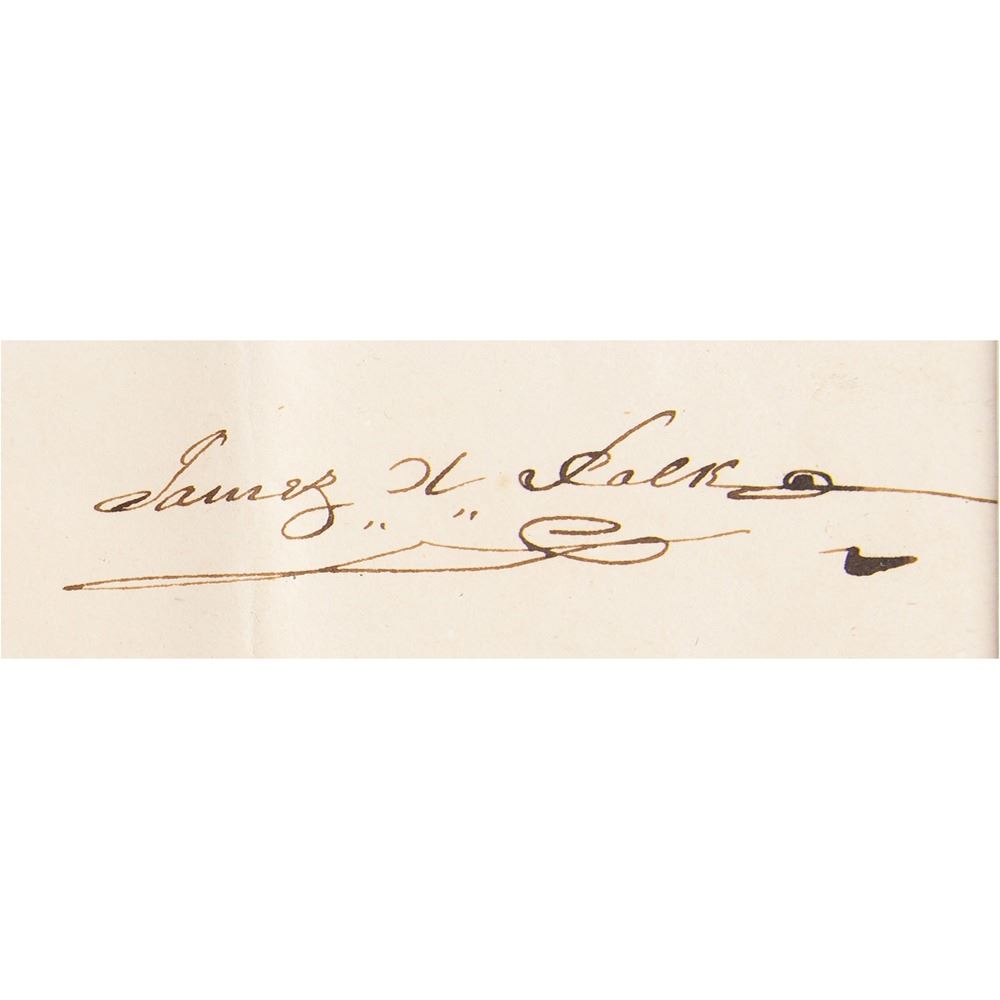 James K Polk